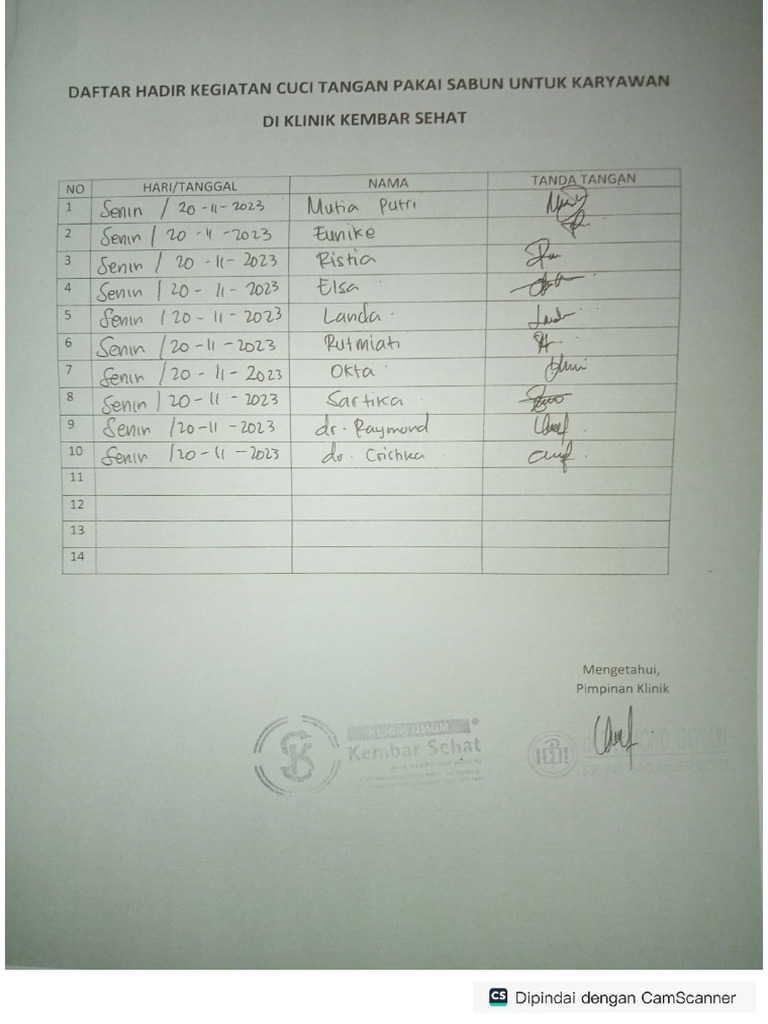 DAFTAR HADIR KEGIATAN CUCI TANGAN PAKAI SABUN UNTUK KARYAWAN
DI KLINIK KEMBAR SEHAT
NO HARI/TANGGAL NAMA TANDA TANGAN
1 Senin / 20-11-2023 Mutia Putri
2 Senin / 20-11-2023 Eunike
3 Senin / 20-11-2023 Ristia
4 Senin / 20-11-2023 Elsa
5 Senin / 20-11-2023 Landa
6 Senin / 20-11-2023 Rutmiati
7 Senin / 20-11-2023 Okta
8 Senin / 20-11-2023 Sartika
9 Senin / 20-11-2023 dr. Raymond
10 Senin / 20-11-2023 dr. Crichka
11
12
13
14
Mengetahui,
Pimpinan Klinik
KLINIK UMUM
Kembar Sehat
CS Dipindai dengan CamScanner